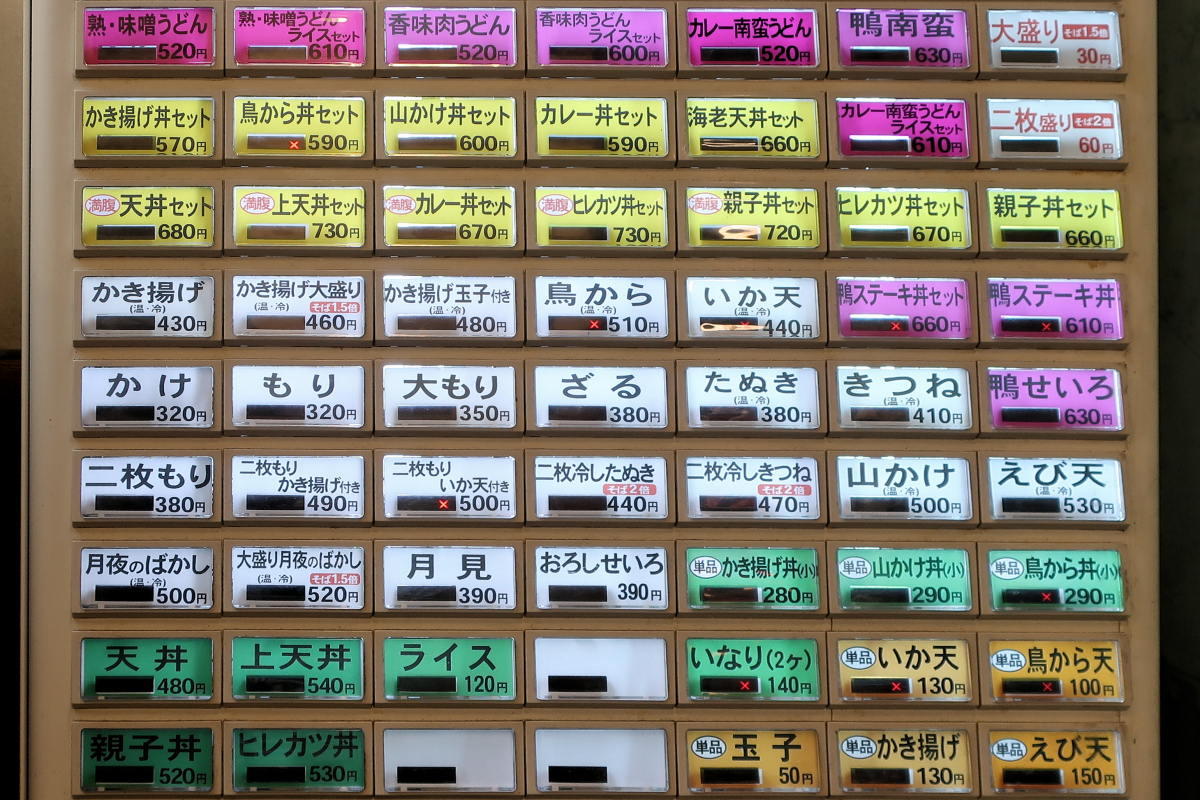 熟・味噌うどん
520円
熟・味噌うどん
ライスセット
610円
香味肉うどん
520円
香味肉うどん
ライスセット
600円
カレー南蛮うどん
520円
鴨南蛮
630円
大盛り そば1.5倍
30円
かき揚げ丼セット
570円
鳥から丼セット
×590円
山かけ丼セット
600円
カレー丼セット
590円
海老天丼セット
660円
カレー南蛮うどん
ライスセット
610円
二枚盛り そば2倍
60円
満腹 天丼セット
680円
満腹 上天丼セット
730円
満腹 カレー丼セット
670円
満腹 ヒレカツ丼セット
730円
満腹 親子丼セット
720円
ヒレカツ丼セット
670円
親子丼セット
660円
かき揚げ
(温・冷)
430円
かき揚げ大盛り
(温・冷) そば1.5倍
460円
かき揚げ玉子付き
(温・冷)
480円
鳥から
(温・冷)
×510円
いか天
(温・冷)
×440円
鴨ステーキ丼セット
×660円
鴨ステーキ丼
×610円
かけ
320円
もり
320円
大もり
350円
ざる
380円
たぬき
(温・冷)
380円
きつね
(温・冷)
410円
鴨せいろ
630円
二枚もり
380円
二枚もり
かき揚げ付き
490円
二枚もり
いか天付き
×500円
二枚冷したぬき
そば2倍
440円
二枚冷しきつね
そば2倍
470円
山かけ
(温・冷)
500円
えび天
(温・冷)
530円
月夜のばかし
(温・冷)
500円
大盛り月夜のばかし
(温・冷) そば1.5倍
520円
月見
390円
おろしせいろ
390円
単品 かき揚げ丼(小)
280円
単品 山かけ丼(小)
290円
単品 鳥から丼(小)
×290円
天丼
480円
上天丼
540円
ライス
120円
いなり(2ヶ)
×140円
単品 いか天
×130円
単品 鳥から天
×100円
親子丼
520円
ヒレカツ丼
530円
単品 玉子
50円
単品 かき揚げ
130円
単品 えび天
150円